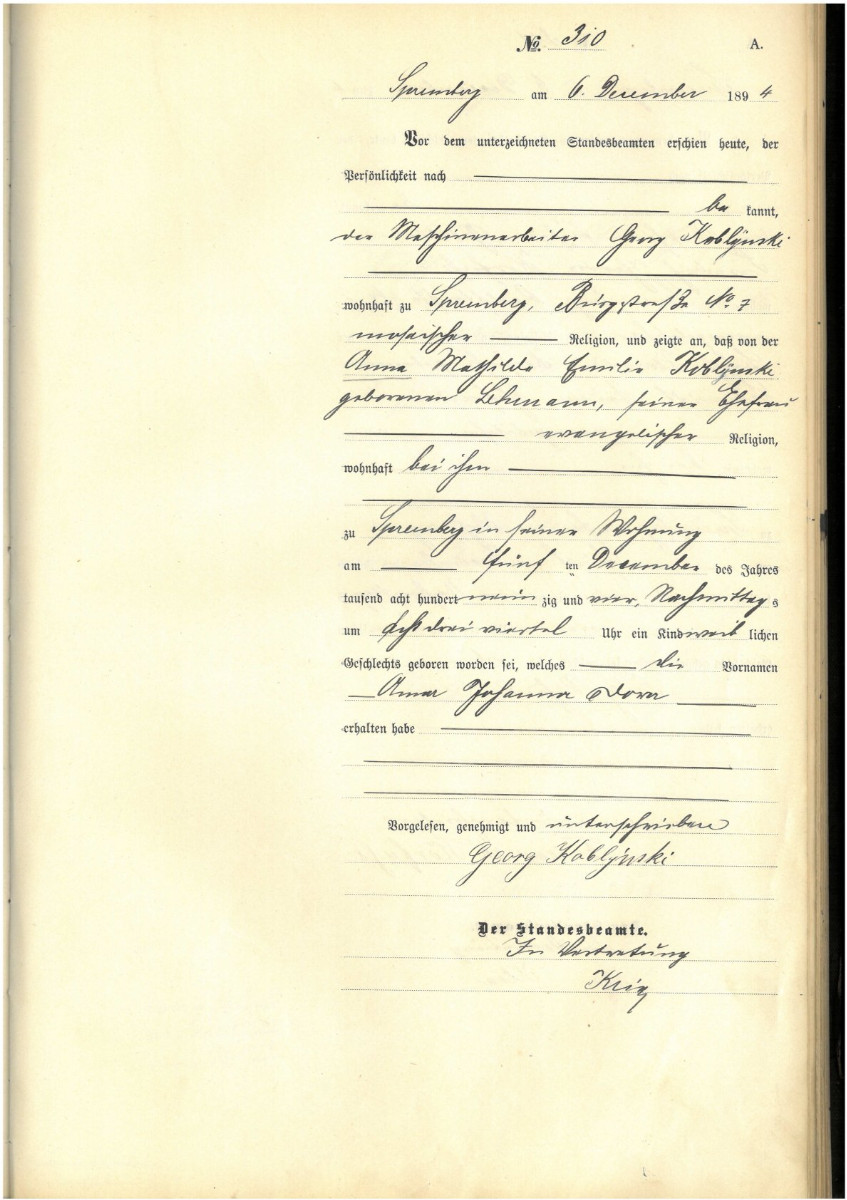 No. 310 A.
Spremberg am 6. December 1894
Vor dem unterzeichneten Standesbeamten erschien heute, der
Persönlichkeit nach
be kannt,
der Maschinenarbeiter Georg Koblÿnski
wohnhaft zu Spremberg, Burgstraße No 7
mosaischer Religion, und zeigte an, daß von der
Anna Mathilde Emilie Koblÿnski
geborenen Lehmann, seiner Ehefrau
evangelischer Religion,
wohnhaft bei ihm
zu Spremberg in seiner Wohnung
am fünf ten December des Jahres
tausend acht hundert neun zig und vier, Nachmittag s
um acht drei viertel Uhr ein Kind weib lichen
Geschlechts geboren worden sei, welches die Vornamen
Anna Johanna Dora
erhalten habe
Vorgelesen, genehmigt und unterschrieben
Georg Koblÿnski
Der Standesbeamte.
In Vertretung